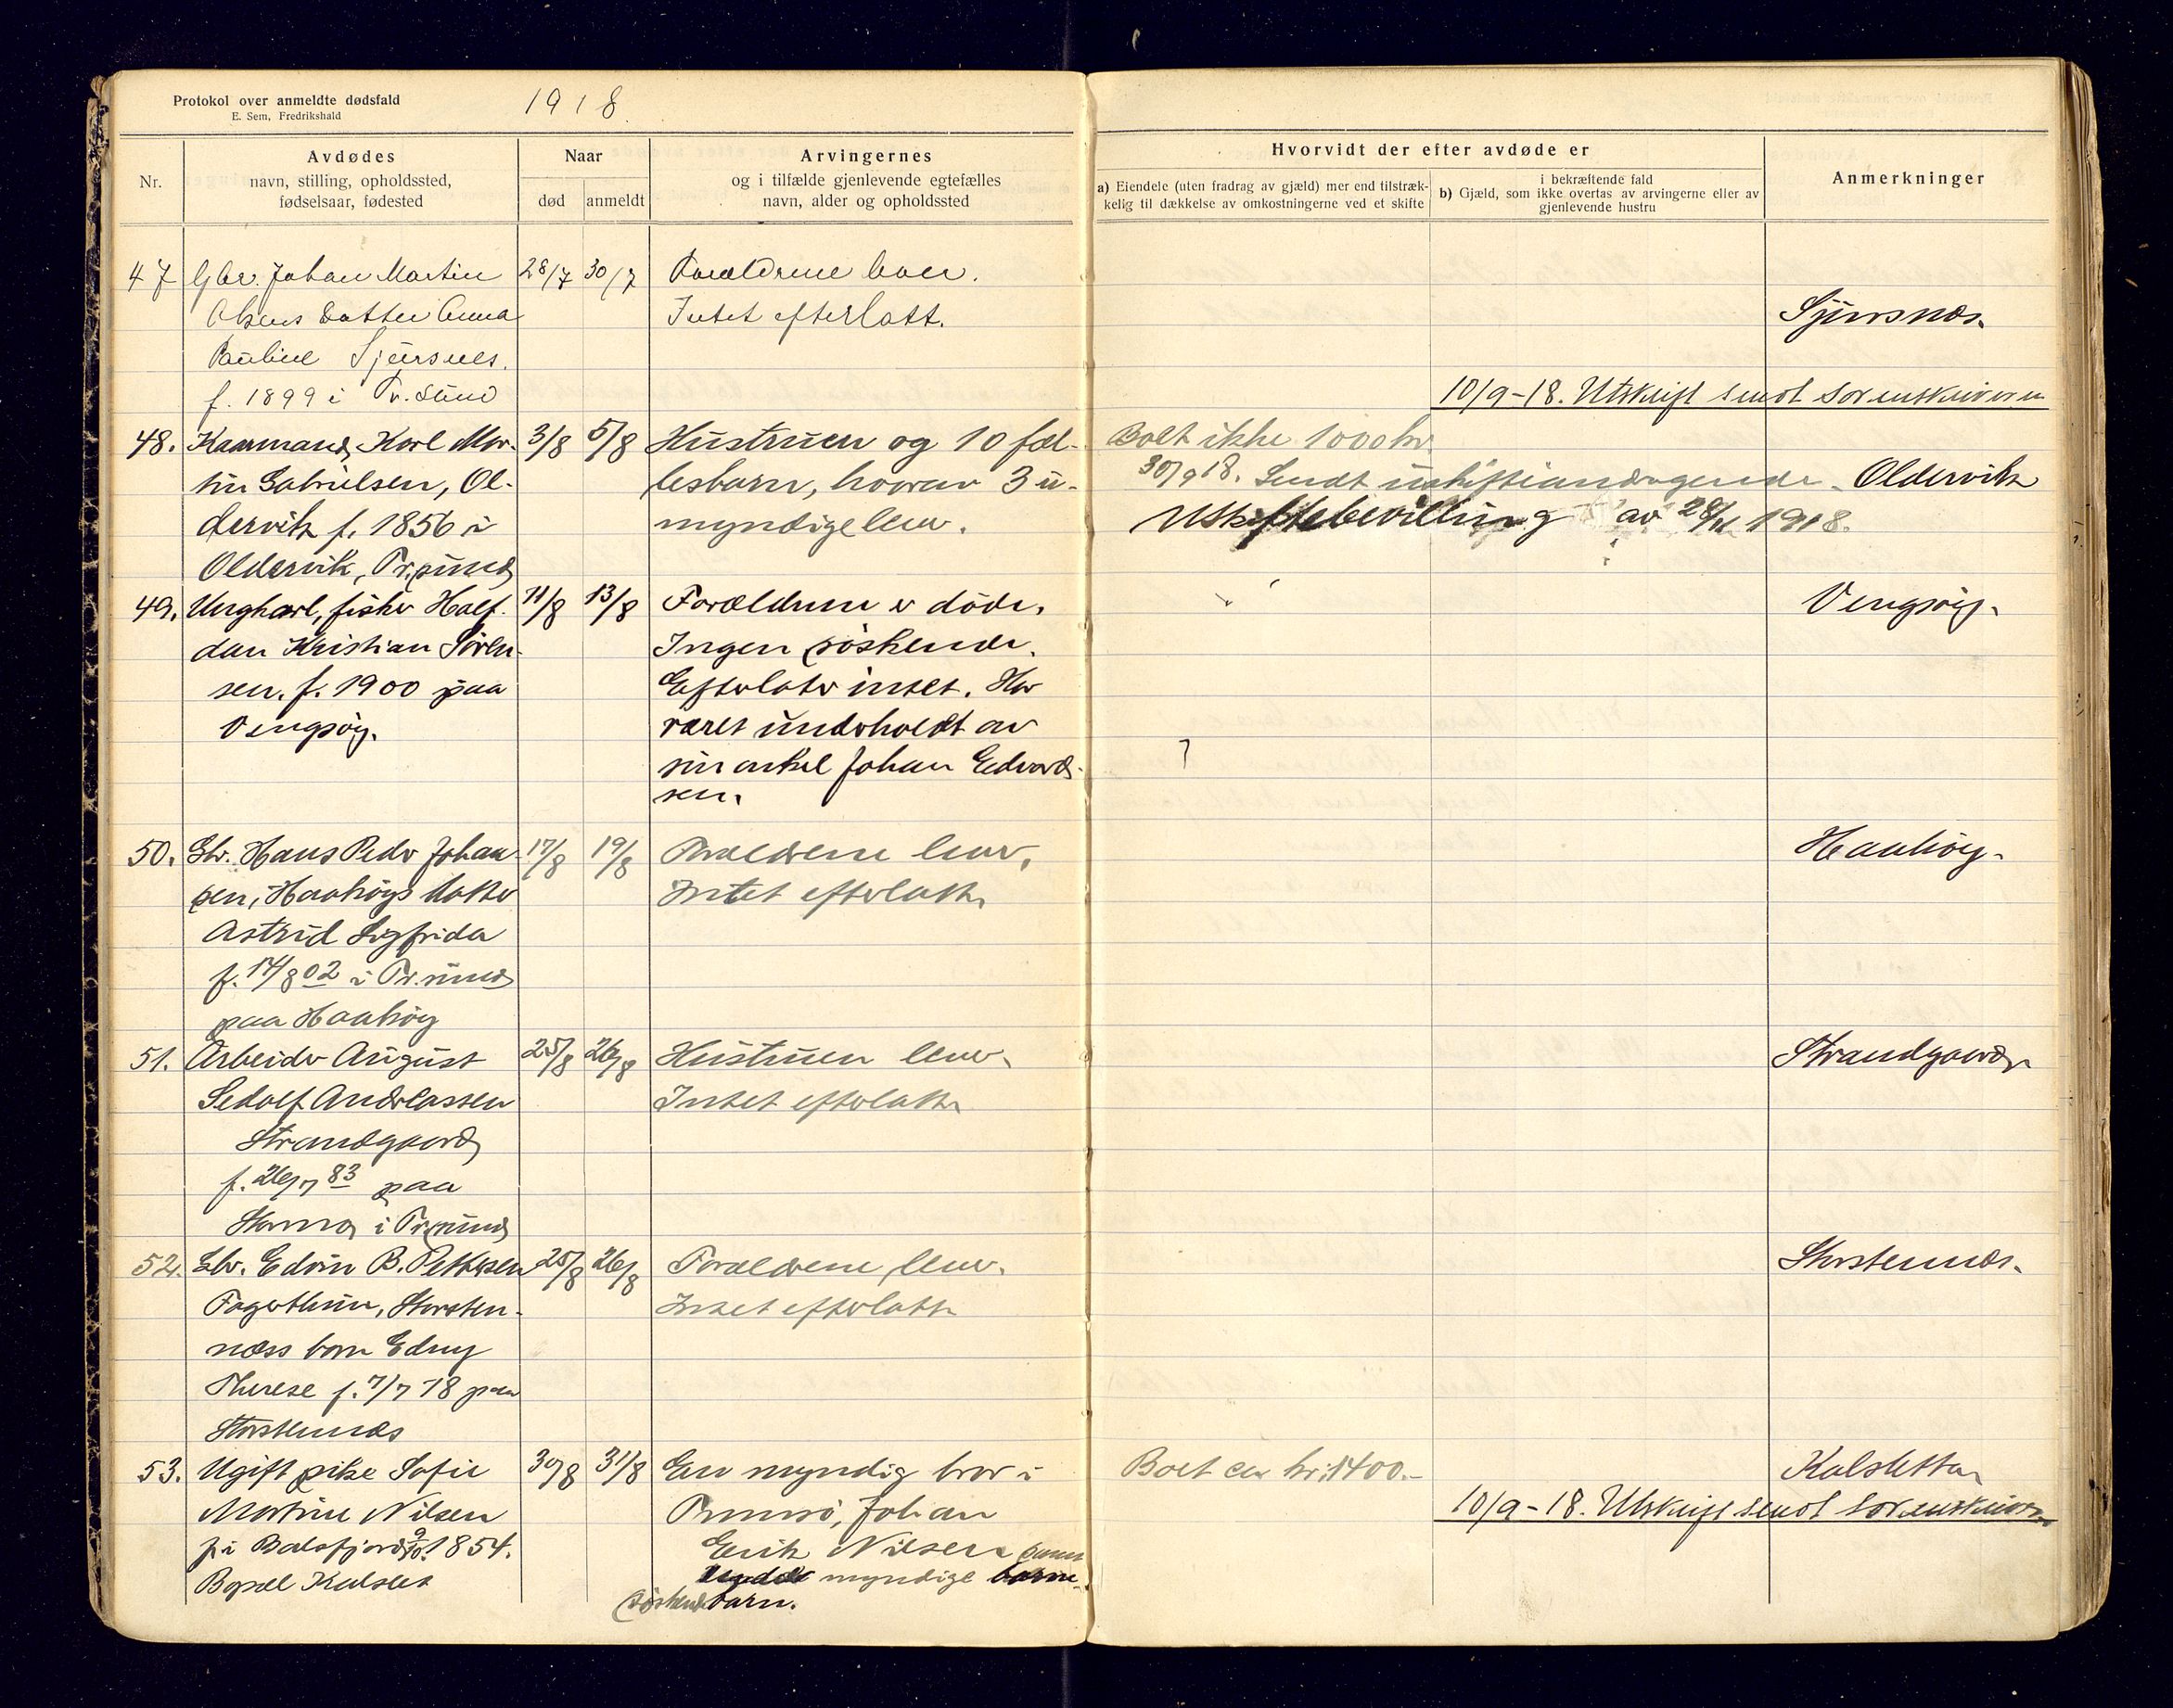 Protokol over anmeldte dødsfald
E. Sem, Fredrikshald
1918.
Nr.
Avdødes
navn, stilling, opholdssted,
fødselsaar, fødested
Naar
død
anmeldt
Arvingernes
og i tilfælde gjenlevende egtefælles
navn, alder og opholdssted
Hvorvidt der efter avdøde er
a) Eiendele (uten fradrag av gjæld) mer end tilstræk-
kelig til dækkelse av omkostningerne ved et skifte
i bekræftende fald
b) Gjæld, som ikke overtas av arvingerne eller av
gjenlevende hustru
Anmerkninger
47 Gbr. Johan Martin 28/7 30/7 Forældrene lever.
Olsens datter Anna Intet efterlatt. Sjursnæs.
Pauline Sjursnes.
f. 1899 i Tr.sund 10/9-18. Utskrift sendt sorenskriveren
48. Kaarmand Karl Mar- 3/8 5/8 Hustruen og 10 fæl- Boet ikke 1000 kr.
tin Gabrielsen, Ol- lesbarn, hvorav 3 u- 30/9 18. Sendt uskifteandragende. Oldervik
dervik f. 1856 i myndige lever. Uskiftebevilling av 28/11 1918.
Oldervik, Tr.sund
49. Ungkarl, fisker Half- 11/8 13/8 Forældrene er døde. Vengsøy.
dan Kristian Søren- Ingen søskende.
sen. f. 1900 paa Efterlater intet. Har
Vengsøy. været underholdt av
sin onkel Johan Edvard-
sen.
50. Gbr. Hans Peder Johan- 17/8 19/8 Forældrene lever. Haakøy.
sen, Haakøys datter Intet efterlatt
Astrid Sigfrida
f. 14/8 02 i Tr.sund
paa Haakøy
51. Arbeider August 25/8 26/8 Hustruen lever. Strandgaard
Sedolf Andreassen Intet efterlatt
Strandgaard
f. 26/7 83 paa
i Tr.sund
52. Gbr. Edvin B. Pettersen 25/8 26/8 Forældrene lever. Storstennæs.
Fagertun, Storsten- Intet efterlatt
næss barn Edny
Therese f. 7/7 18 paa
Storstennæs
53. Ugift pike Sofie 30/8 31/8 En myndig bror i Boet ca kr. 1400.- Kalsletta
Martine Nilsen Tromsø, Johan 10/9-18. Utskrift sendt sorenskriveren
f. i Balsfjord 9/10 1854. Erik Nilsen samt
Bopæl Kalslet myndige
søskendebarn.